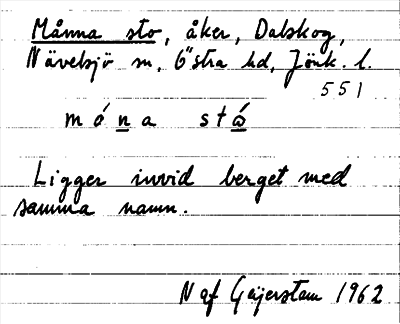 Månna sto, åker, Dalskog,
Nävelsjö sn, Östra hd, Jönk. l.
551
m ó n a s t ó
Ligger invid berget med
samma namn.
N af Geijerstam 1962